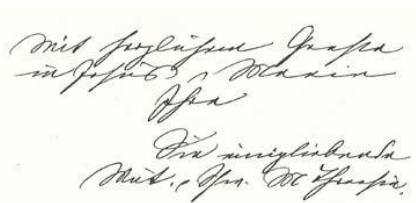 Mit herzlichem Gruße
in Jesus u. Maria
Ihre
Sie innigliebende
Mut. M. Theresia.